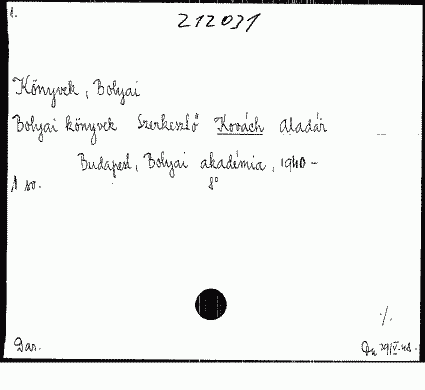 1.
212031
Könyvek, Bolyai
Bolyai könyvek Szerkesztő Kovách Aladár
Budapest, Bolyai akadémia, 1940-
1 sv. 8°
·/.
Dar. 29/V.48.